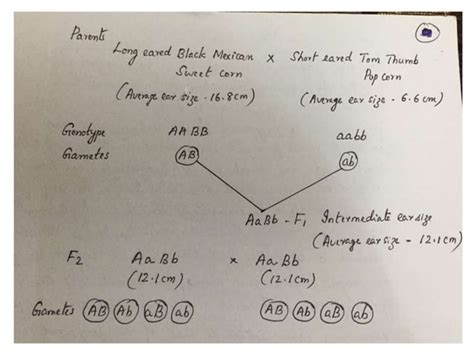 Parents
Long eared Black Mexican x Short eared Tom Thumb
Sweet corn Pop corn
(Average ear size - 16.8cm) (Average ear size - 6.6cm)
Genotype AABB aabb
Gametes AB ab
AaBb - F1 Intermediate ear size
(Average ear size - 12.1cm)
F2 AaBb x AaBb
(12.1cm) (12.1cm)
Gametes AB Ab aB ab AB Ab aB ab